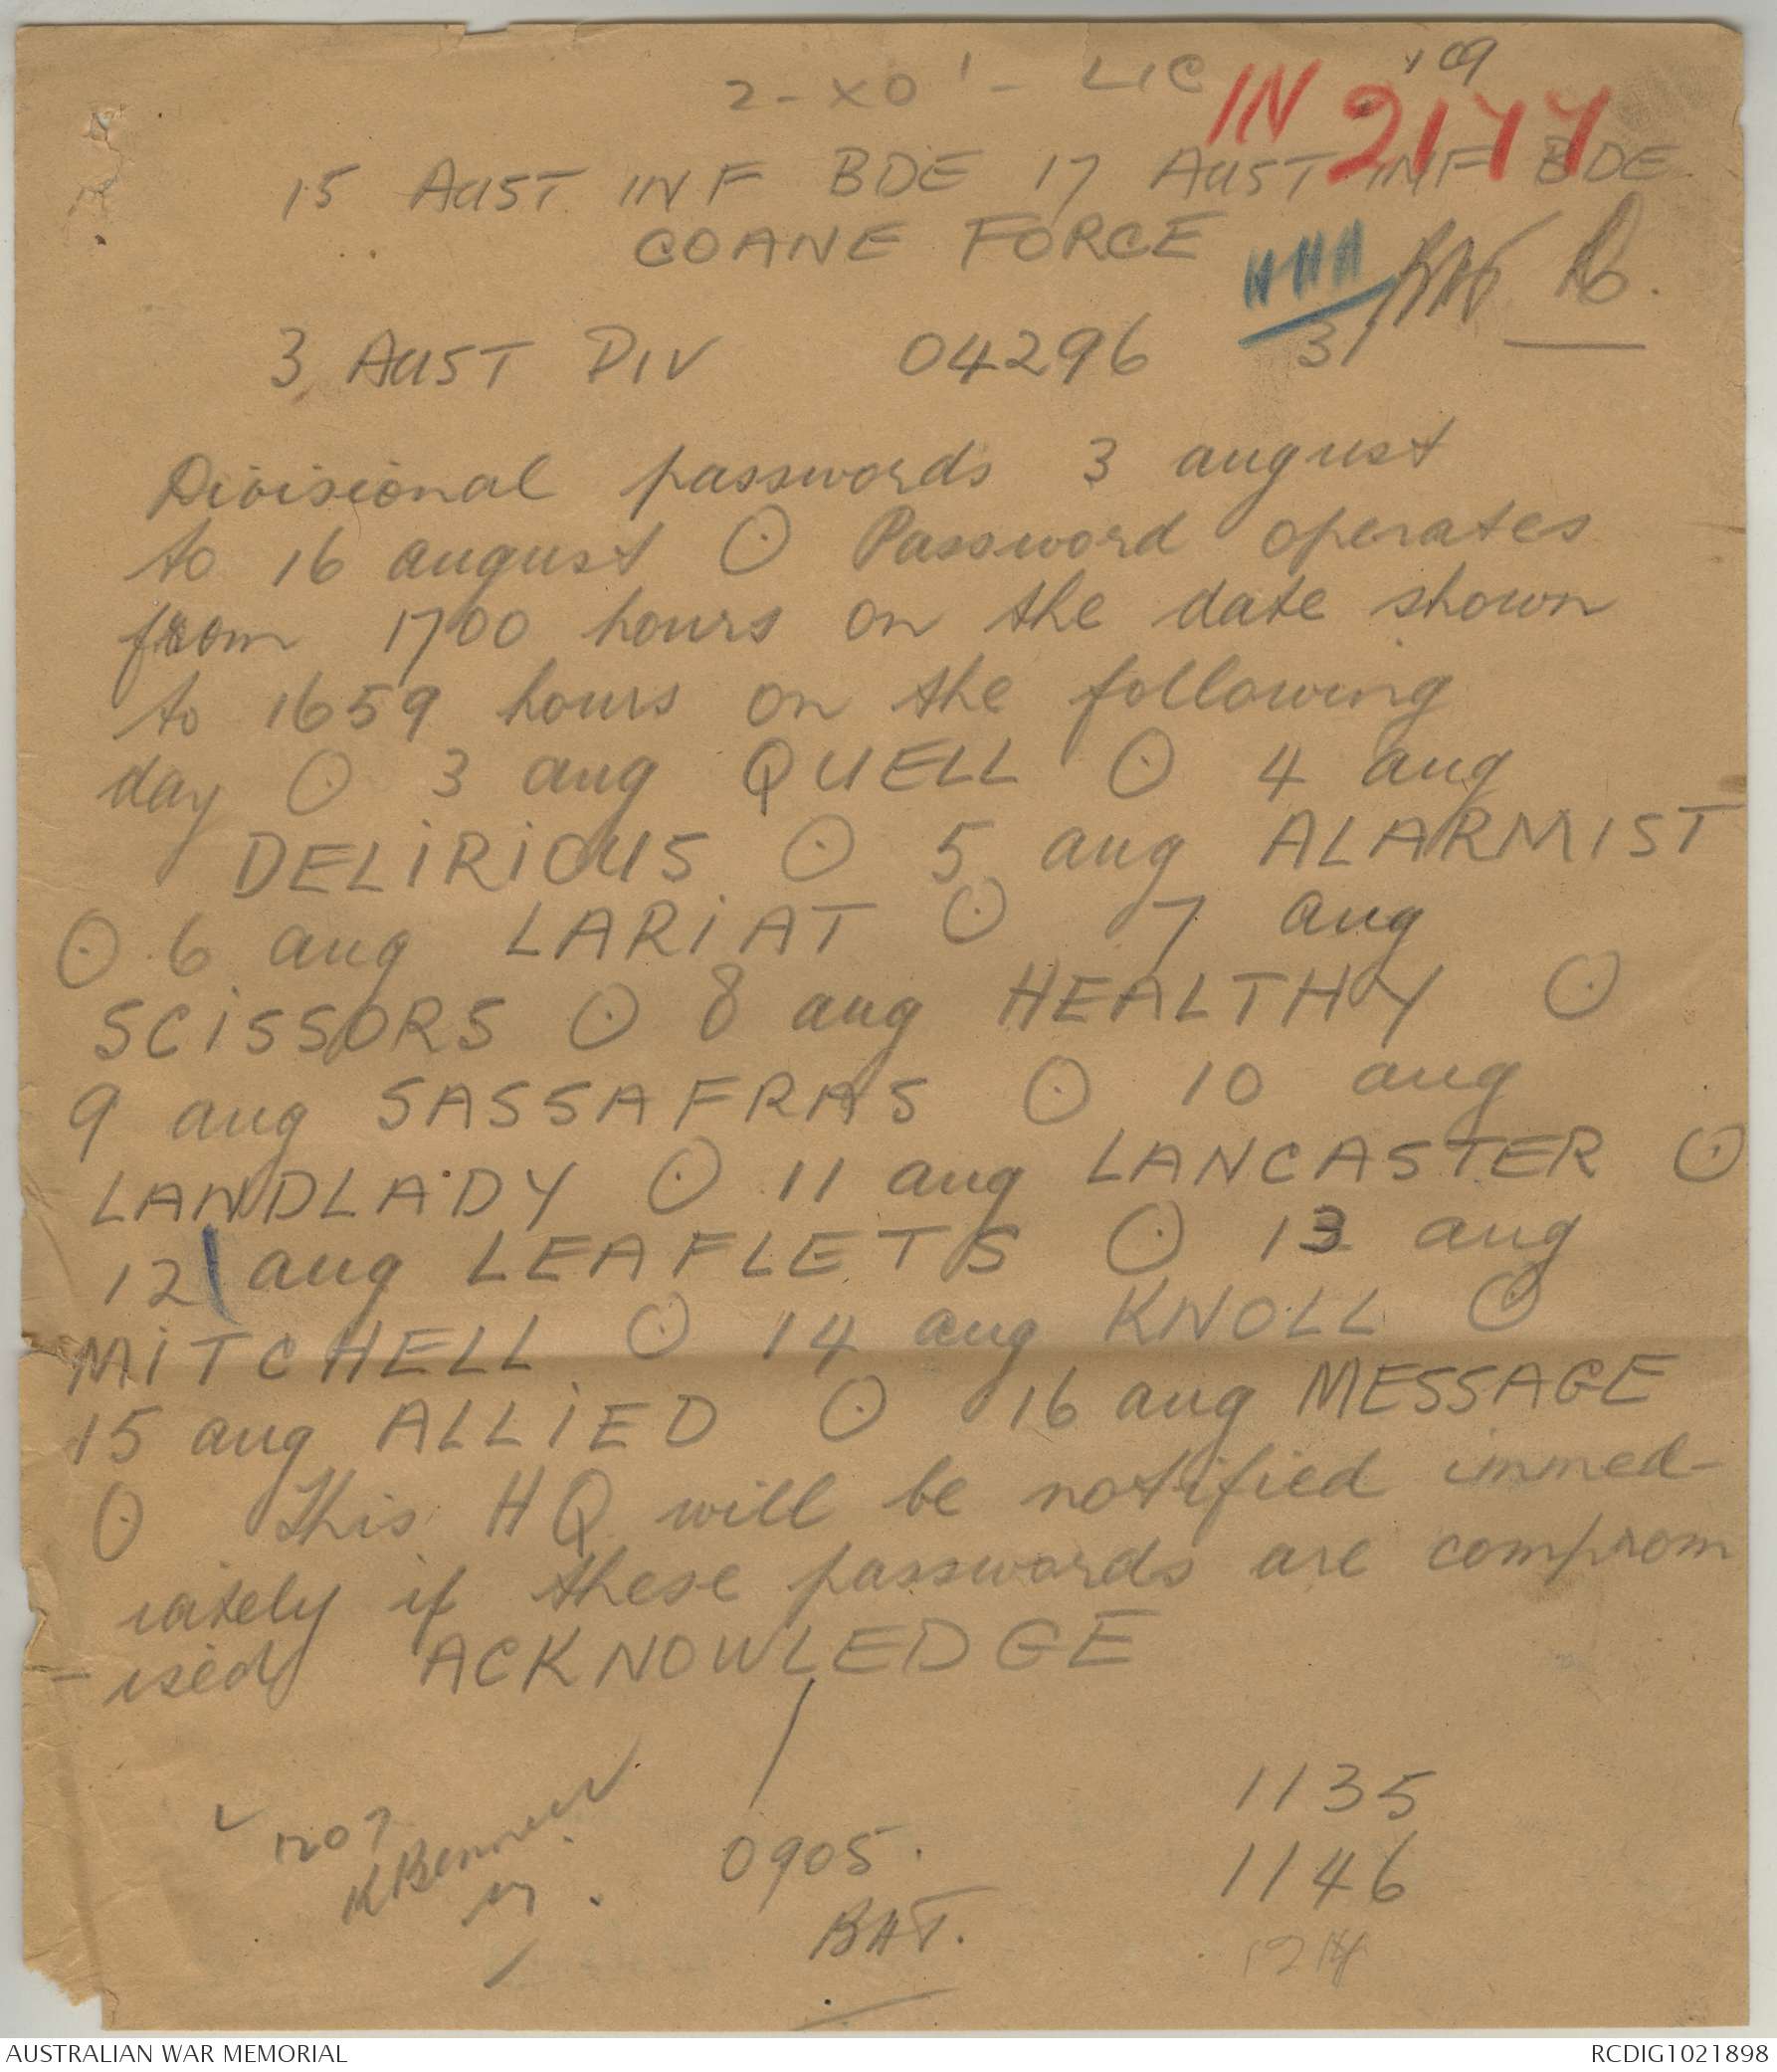 2 - XO 1 - LIC
IN 2177
15 AUST INF BDE 17 AUST INF BDE
COANE FORCE
3 AUST DIV 04296 31
Divisional passwords 3 august
to 16 august ⊙ Password operates
from 1700 hours on the date shown
to 1659 hours on the following
day ⊙ 3 aug QUELL ⊙ 4 aug
DELIRIOUS ⊙ 5 aug ALARMIST
⊙ 6 aug LARIAT ⊙ 7 aug
SCISSORS ⊙ 8 aug HEALTHY ⊙
9 aug SASSAFRAS ⊙ 10 aug
LANDLADY ⊙ 11 aug LANCASTER ⊙
12 aug LEAFLETS ⊙ 13 aug
MITCHELL ⊙ 14 aug KNOLL ⊙
15 aug ALLIED ⊙ 16 aug MESSAGE
⊙ This HQ will be notified immed-
iately if these passwords are comprom
-ised ACKNOWLEDGE
1135
1207
0905.
1146
BAT.
AUSTRALIAN WAR MEMORIAL RCDIG1021898